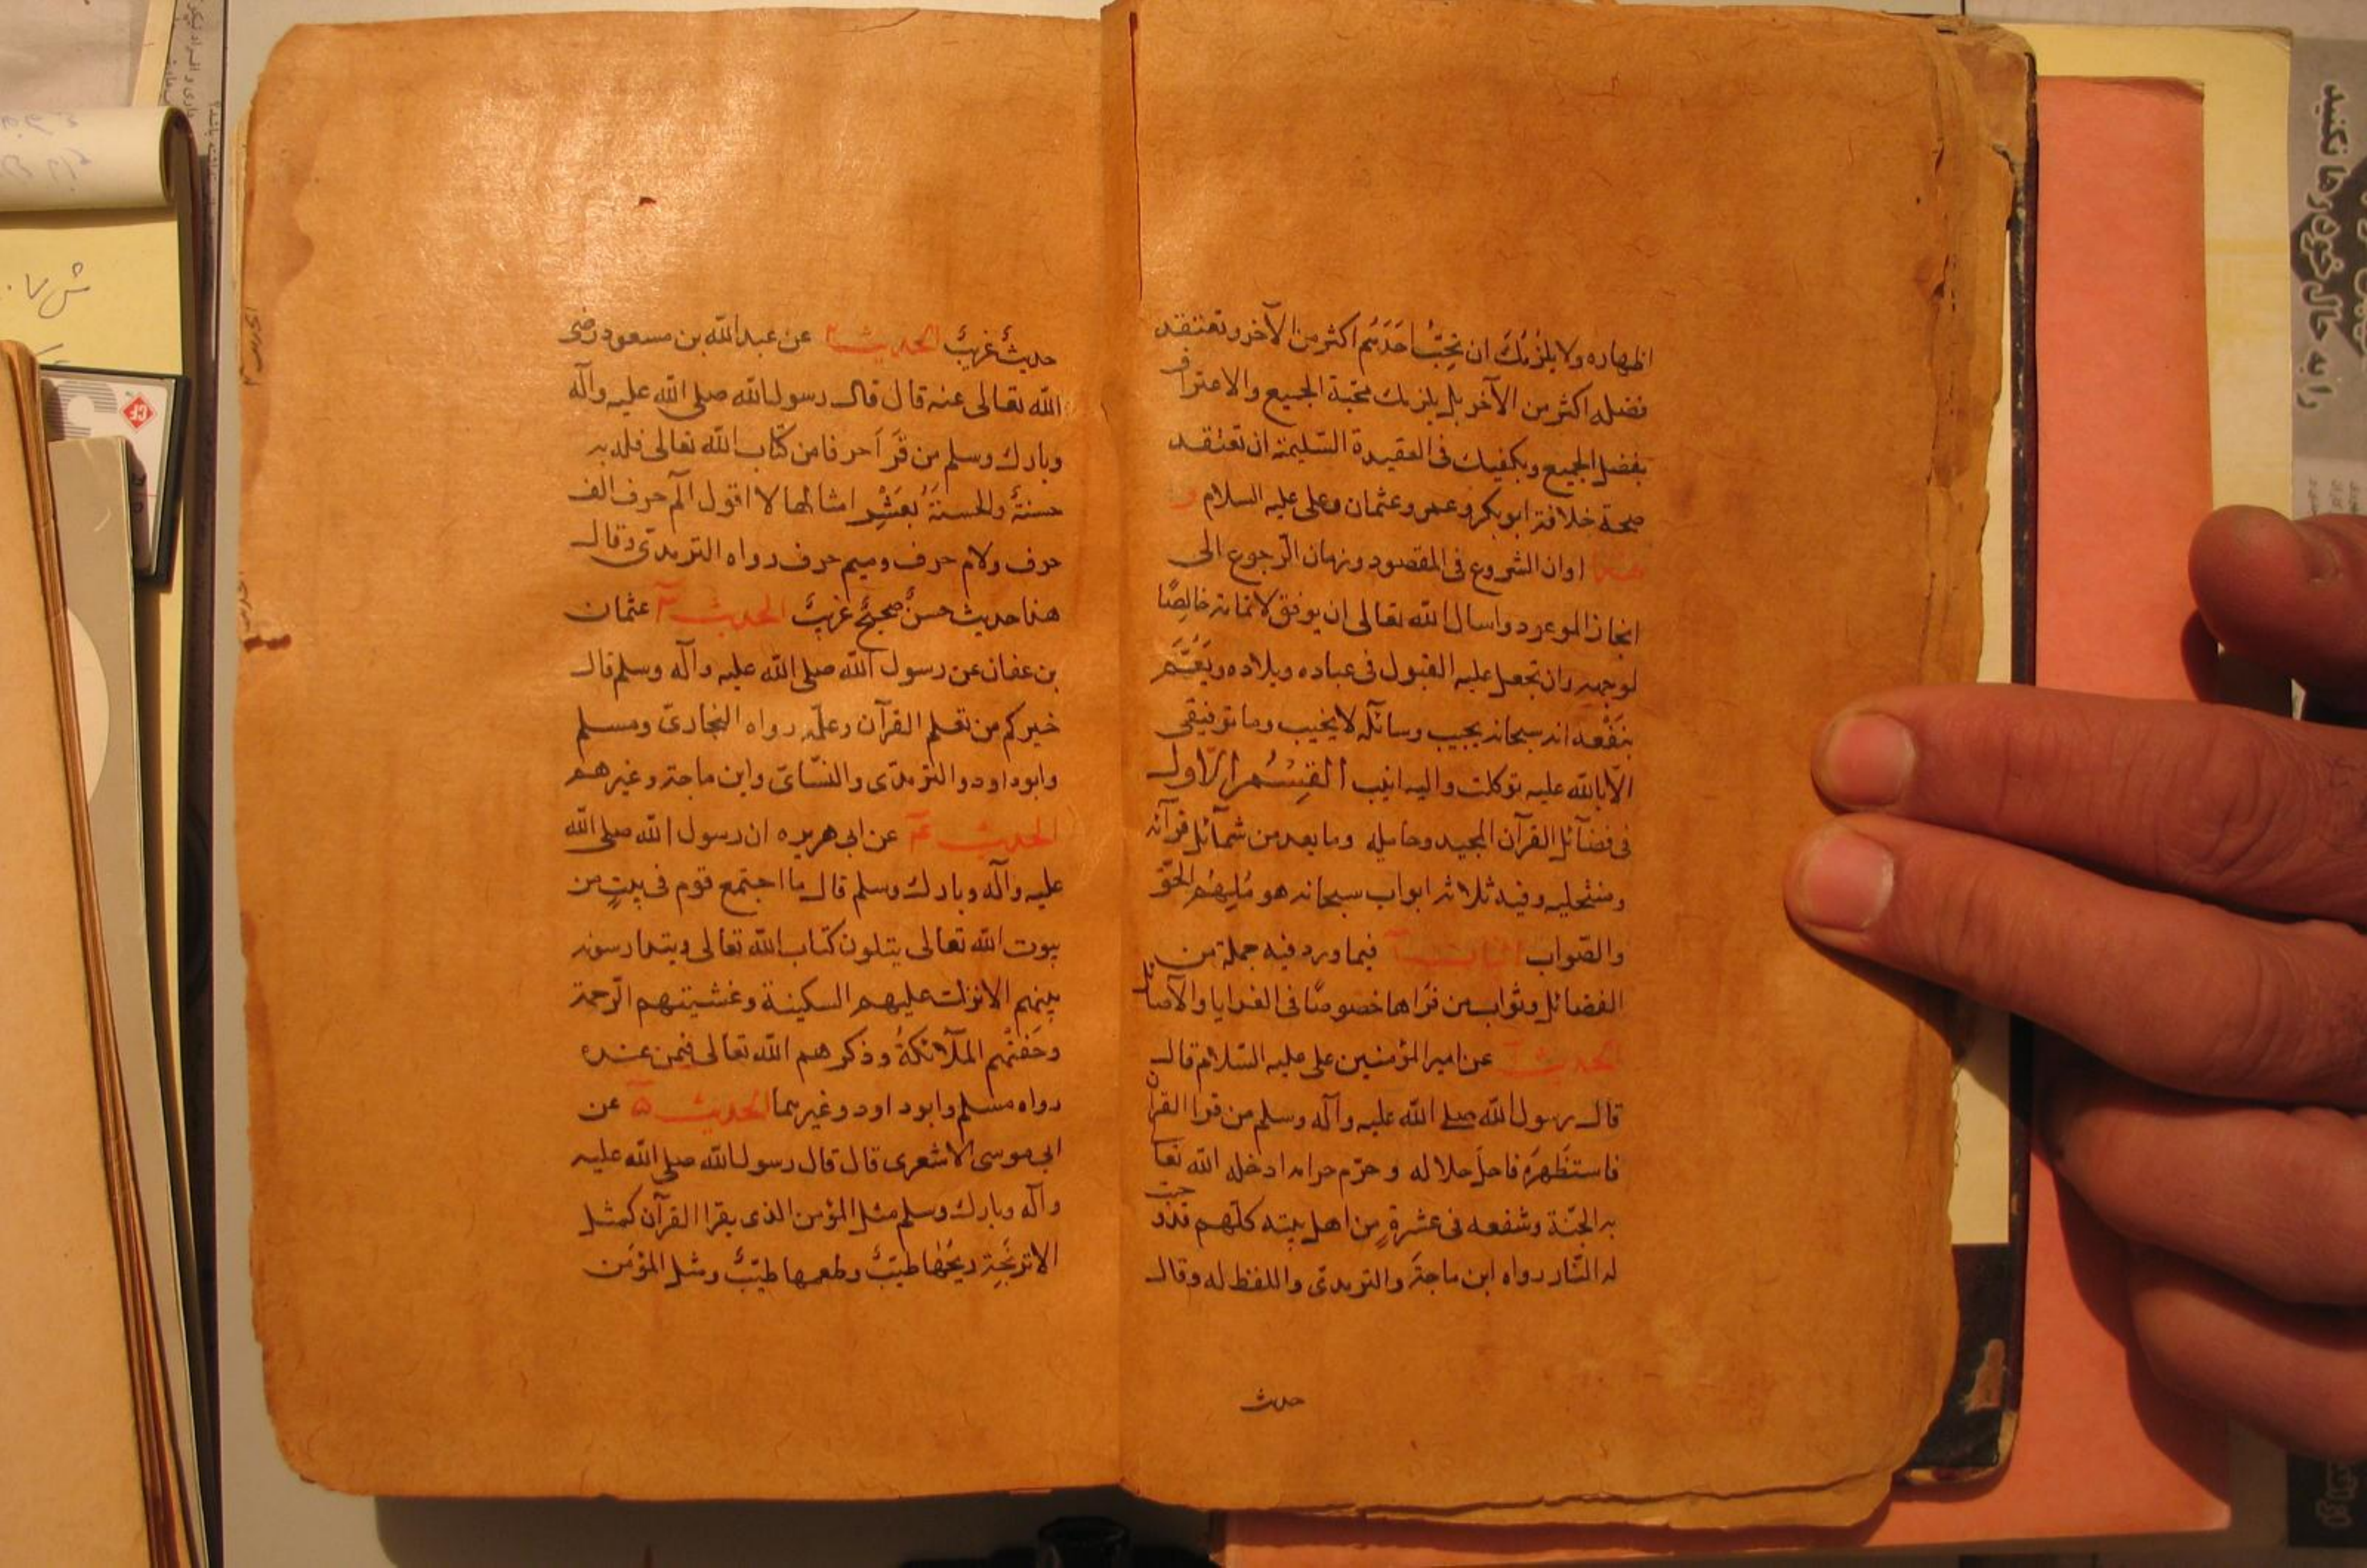 اظهاره ولا يلزمُكَ ان تحِبَّ احَدَهُم اكثر من الآخر وتعتقد
فضله اكثر من الآخر بل يلزمك محبة الجميع والاعتراف
بفضل الجميع ويكفيك فى العقيدة السّليمة ان تعتقد
صحة خلافة ابوبكر وعمر وعثمان وعلى عليه السلام
اوان الشروع فى المقصود وزمان الرّجوع الى
انجاز الموعود واسال الله تعالى ان يوفق لاتمامه خالِصًا
لوجهه وان تجعل عليه القبول فى عباده وبلاده ويَعُمَّهم
بنَفْعه انه سبحانه يجيب وسائله لا يخيب وما توفيقى
الّا بالله عليه توكلت واليه انيب القِسْمُ الاول
فى فضآئل القرآن المجيد وحامليه وما يعد من شمآئل قرآئه
ومنتحليه وفيه ثلاثة ابواب سبحانه هو مُلهِمُ الحَقّ
والصّواب الباب ١ فيما ورد فيه جملة من
الفضائل وثواب من قرأها خصوصًا فى الغدايا والآصائل
الحديث ١ عن امير المؤمنين على عليه السّلام قال
قال رسول الله صلى الله عليه وآله وسلم من قرا القرآن
فاستَظهرَه فاحلّ حلاله وحرّم حرامه ادخله الله تعا
به الجنّة وشفعه فى عشرةٍ مِن اهل بيته كلّهم قد وجبت
له النّار رواه ابن ماجة والترمذى واللفظ له وقال
حديث
حديثٌ غريبٌ الحديث ٢ عن عبدالله بن مسعود رضى
الله تعالى عنه قال قال رسول الله صلى الله عليه وآله
وبارك وسلم من قَرَأ حرفا من كتاب الله تعالى فله به
حسنةٌ والحسنةُ بعَشْرِ امثالها لا اقول الٓم حرف الف
حرف ولام حرف وميم حرف رواه الترمذى وقال
هذا حديث حسنٌ صحيحٌ غريبٌ الحديث ٣ عثمان
بن عفان عن رسول الله صلى الله عليه وآله وسلم قال
خيركم من تعلم القرآن وعلّمه رواه البخارىّ ومسلم
وابوداود والترمذى والنسّائ وابن ماجة وغيرهم
الحديث ٤ عن ابى هريره ان رسول الله صلى الله
عليه وآله وبارك وسلم قال ما اجتمع قوم فى بيتٍ من
بيوت الله تعالى يتلون كتاب الله تعالى ويتدارسونه
بينهم الا نزلت عليهم السكينة وغشيتهم الرّحمة
وحَفتْهم الملآئكةُ وذكرهم الله تعالى فيمن عنده
رواه مسلم وابوداود وغيرهما الحديث ۵ عن
ابى موسى الاشعرى قال قال رسول الله صلى الله عليه
وآله وبارك وسلم مثل المؤمن الذى يقرا القرآن كمثل
الاترنجة ريحُها طيّبٌ وطعمها طيّبٌ ومثل المؤمن
را به حال خود رها نکنید